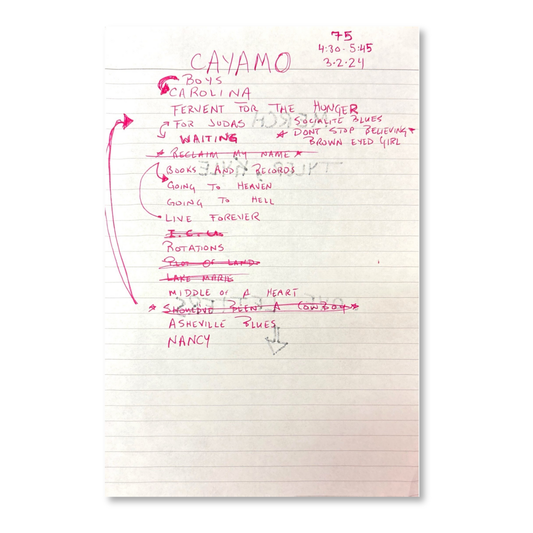 75
4:30-5:45
3-2-24
CAYAMO
BOYS
CAROLINA
FERVENT FOR THE HUNGER
FOR JUDAS
SOCIALITE BLUES
WAITING
* DONT STOP BELIEVING *
BROWN EYED GIRL
* RECLAIM MY NAME *
BOOKS AND RECORDS
GOING TO HEAVEN
GOING TO HELL
LIVE FOREVER
I.C.U.
ROTATIONS
PLOT OF LAND
LAKE MARIE
MIDDLE OF A HEART
BEEN A COWBOY *
ASHEVILLE BLUES
NANCY